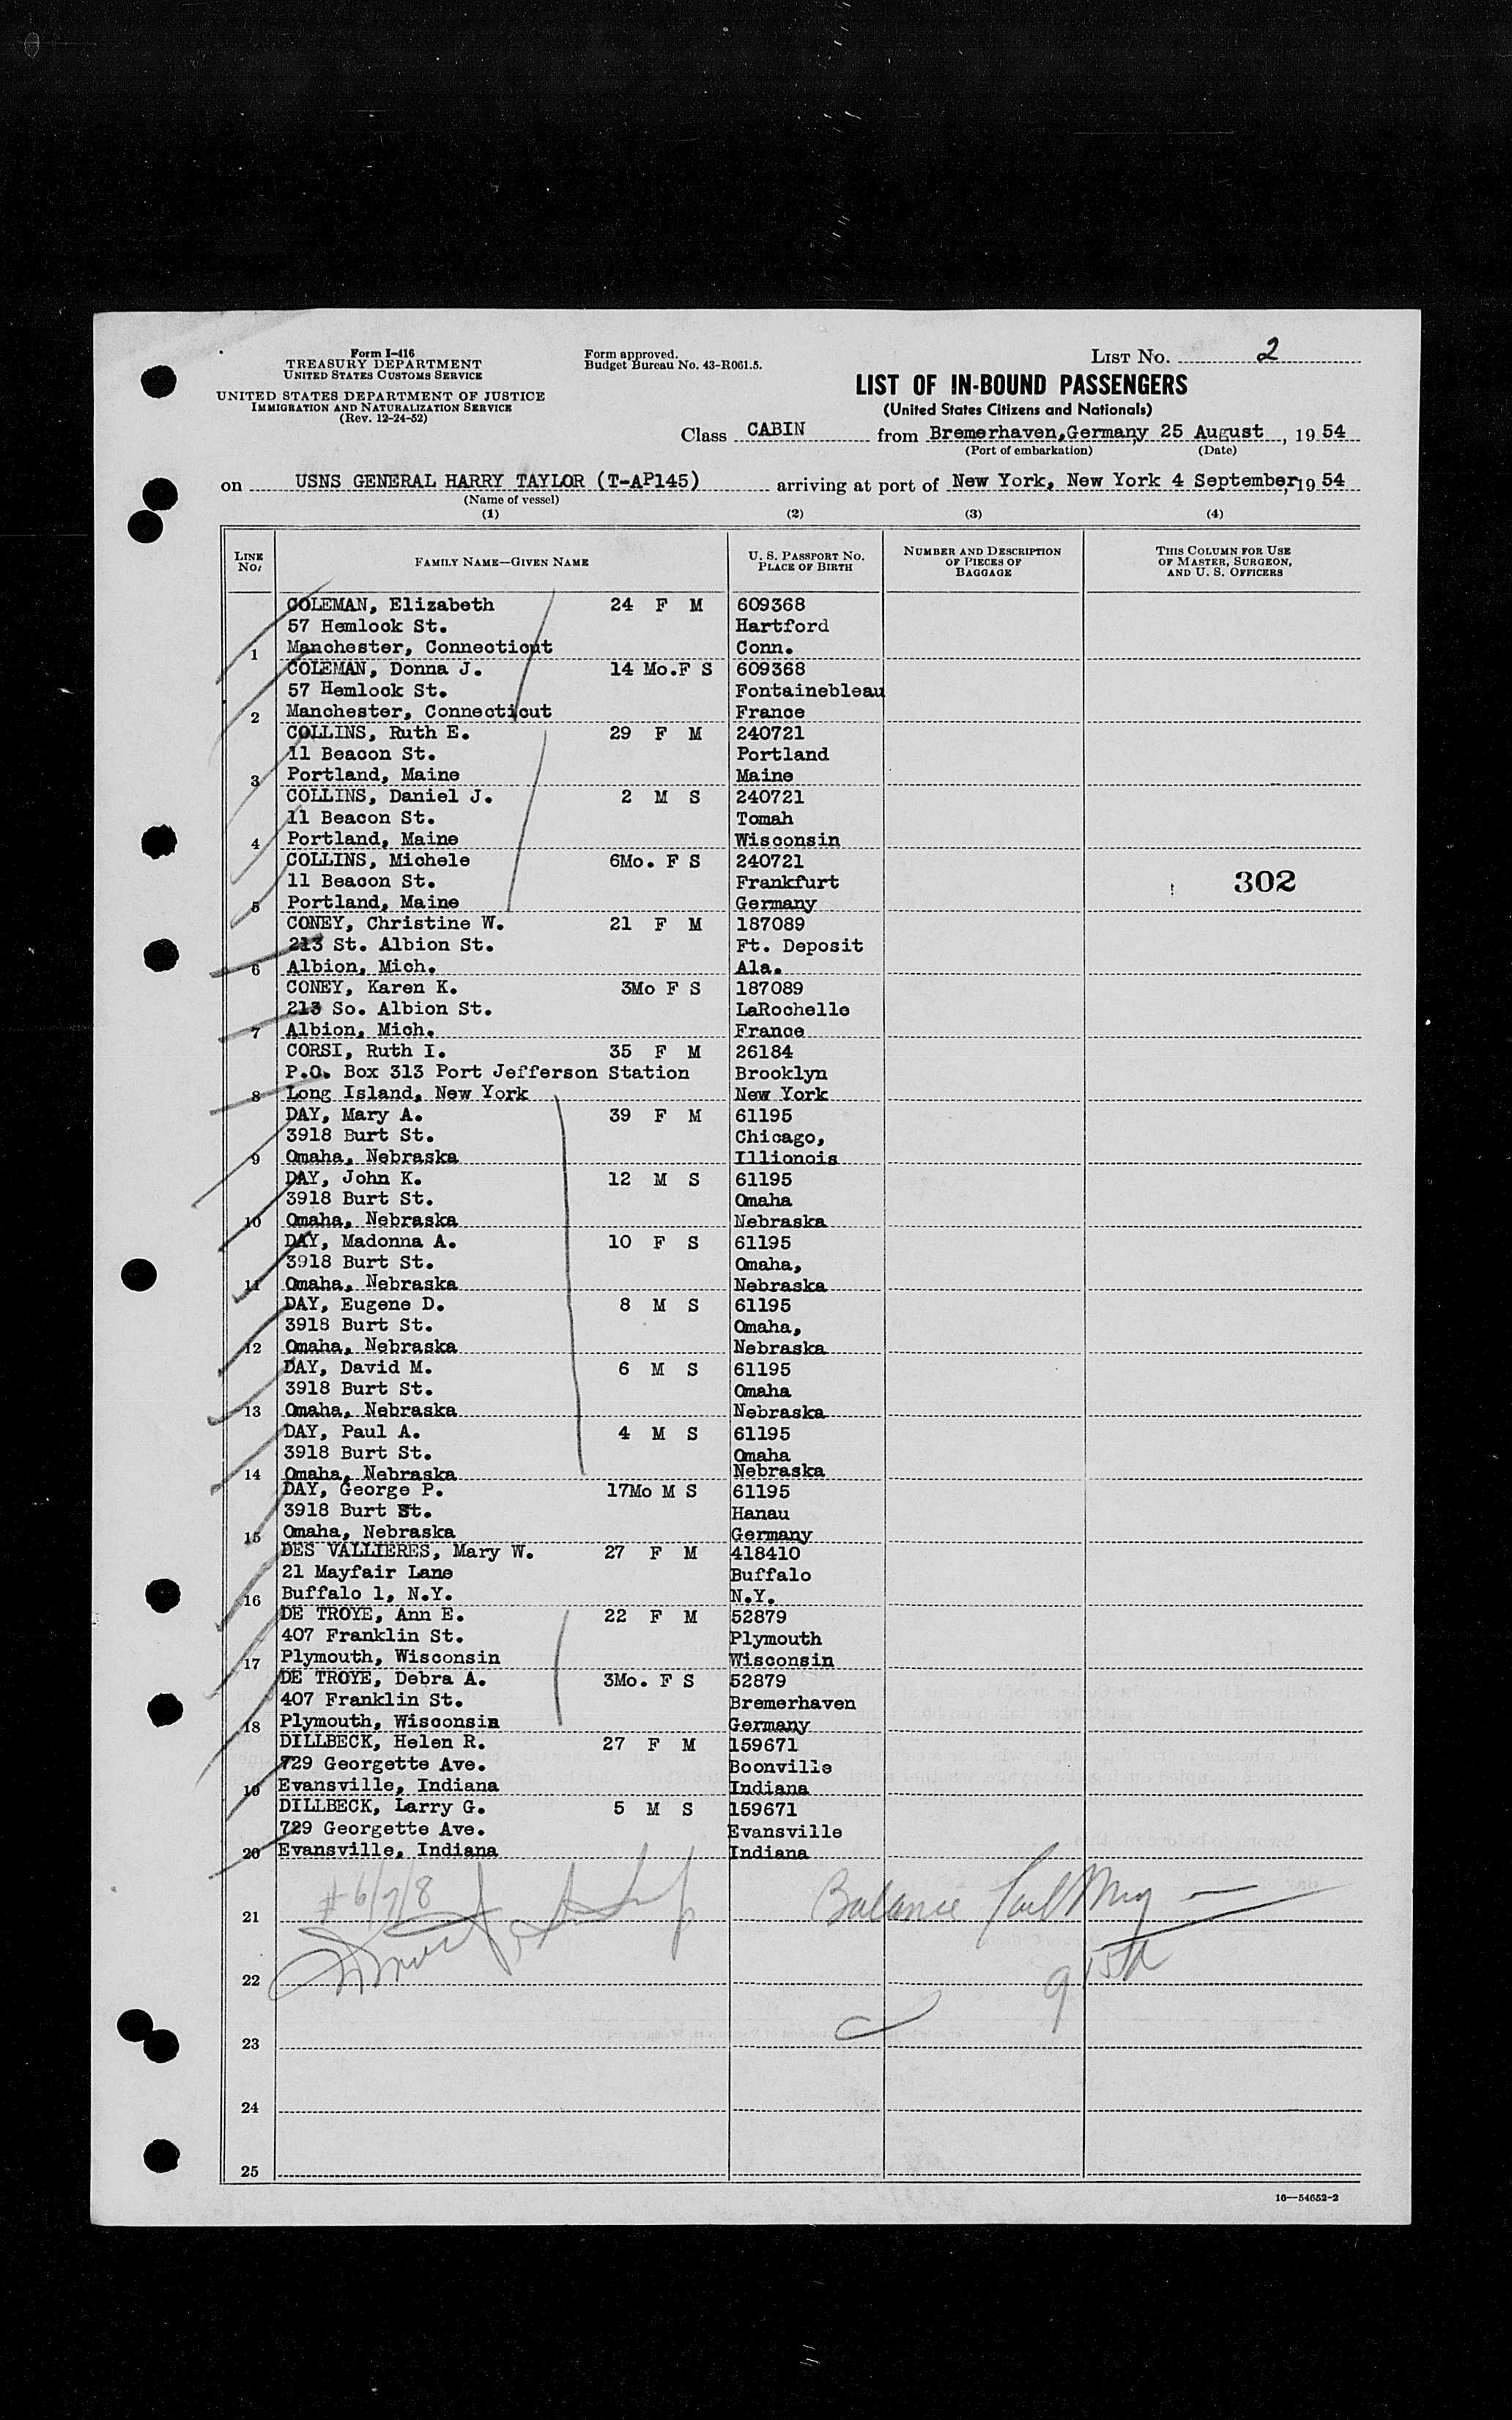 Form I-416
TREASURY DEPARTMENT
UNITED STATES CUSTOMS SERVICE
UNITED STATES DEPARTMENT OF JUSTICE
IMMIGRATION AND NATURALIZATION SERVICE
(Rev. 12-24-52)
Form approved.
Budget Bureau No. 43-R061.5.
LIST No. 2
LIST OF IN-BOUND PASSENGERS
(United States Citizens and Nationals)
Class CABIN from Bremerhaven, Germany 25 August, 1954
(Port of embarkation) (Date)
on USNS GENERAL HARRY TAYLOR (T-AP145) arriving at port of New York, New York 4 September, 1954
(Name of vessel)
(1) (2) (3) (4)
LINE No. FAMILY NAME—GIVEN NAME U. S. PASSPORT No. PLACE OF BIRTH NUMBER AND DESCRIPTION OF PIECES OF BAGGAGE THIS COLUMN FOR USE OF MASTER, SURGEON, AND U. S. OFFICERS
COLEMAN, Elizabeth 24 F M 609368
57 Hemlock St. Hartford
1 Manchester, Connecticut Conn.
COLEMAN, Donna J. 14 Mo.F S 609368
57 Hemlock St. Fontainebleau
2 Manchester, Connecticut France
COLLINS, Ruth E. 29 F M 240721
11 Beacon St. Portland
3 Portland, Maine Maine
COLLINS, Daniel J. 2 M S 240721
11 Beacon St. Tomah
4 Portland, Maine Wisconsin
COLLINS, Michele 6Mo. F S 240721
11 Beacon St. Frankfurt 302
5 Portland, Maine Germany
CONEY, Christine W. 21 F M 187089
213 St. Albion St. Ft. Deposit
6 Albion, Mich. Ala.
CONEY, Karen K. 3Mo F S 187089
213 So. Albion St. LaRochelle
7 Albion, Mich. France
CORSI, Ruth I. 35 F M 26184
P.O. Box 313 Port Jefferson Station Brooklyn
8 Long Island, New York New York
DAY, Mary A. 39 F M 61195
3918 Burt St. Chicago,
9 Omaha, Nebraska Illionois
DAY, John K. 12 M S 61195
3918 Burt St. Omaha
10 Omaha, Nebraska Nebraska
DAY, Madonna A. 10 F S 61195
3918 Burt St. Omaha,
11 Omaha, Nebraska Nebraska
DAY, Eugene D. 8 M S 61195
3918 Burt St. Omaha,
12 Omaha, Nebraska Nebraska
DAY, David M. 6 M S 61195
3918 Burt St. Omaha
13 Omaha, Nebraska Nebraska
DAY, Paul A. 4 M S 61195
3918 Burt St. Omaha
14 Omaha, Nebraska Nebraska
DAY, George P. 17Mo M S 61195
3918 Burt St. Hanau
15 Omaha, Nebraska Germany
DES VALLIERES, Mary W. 27 F M 418410
21 Mayfair Lane Buffalo
16 Buffalo 1, N.Y. N.Y.
DE TROYE, Ann E. 22 F M 52879
407 Franklin St. Plymouth
17 Plymouth, Wisconsin Wisconsin
DE TROYE, Debra A. 3Mo. F S 52879
407 Franklin St. Bremerhaven
18 Plymouth, Wisconsin Germany
DILLBECK, Helen R. 27 F M 159671
729 Georgette Ave. Boonville
19 Evansville, Indiana Indiana
DILLBECK, Larry G. 5 M S 159671
729 Georgette Ave. Evansville
20 Evansville, Indiana Indiana
# 6/7/8 Balance
21
22
23
24
25
16—54652-2